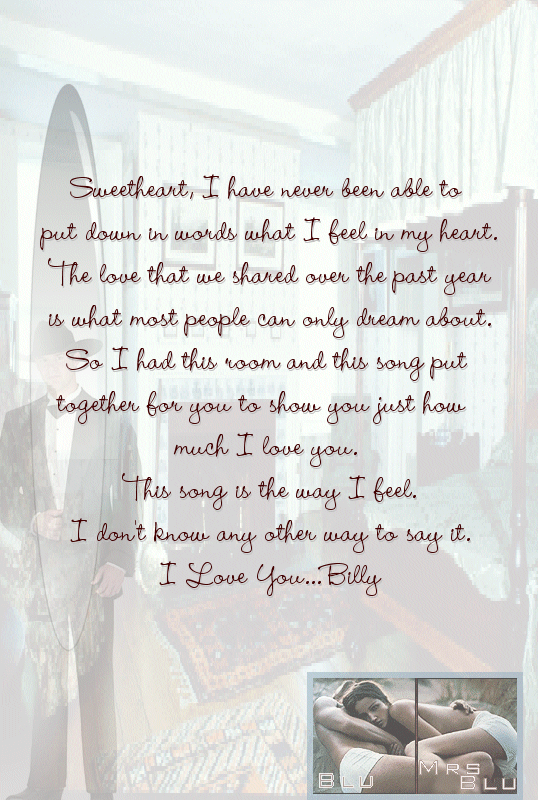 Sweetheart, I have never been able to
put down in words what I feel in my heart.
The love that we shared over the past year
is what most people can only dream about.
So I had this room and this song put
together for you to show you just how
much I love you.
This song is the way I feel.
I don't know any other way to say it.
I Love You...Billy
Blu
Mrs
Blu